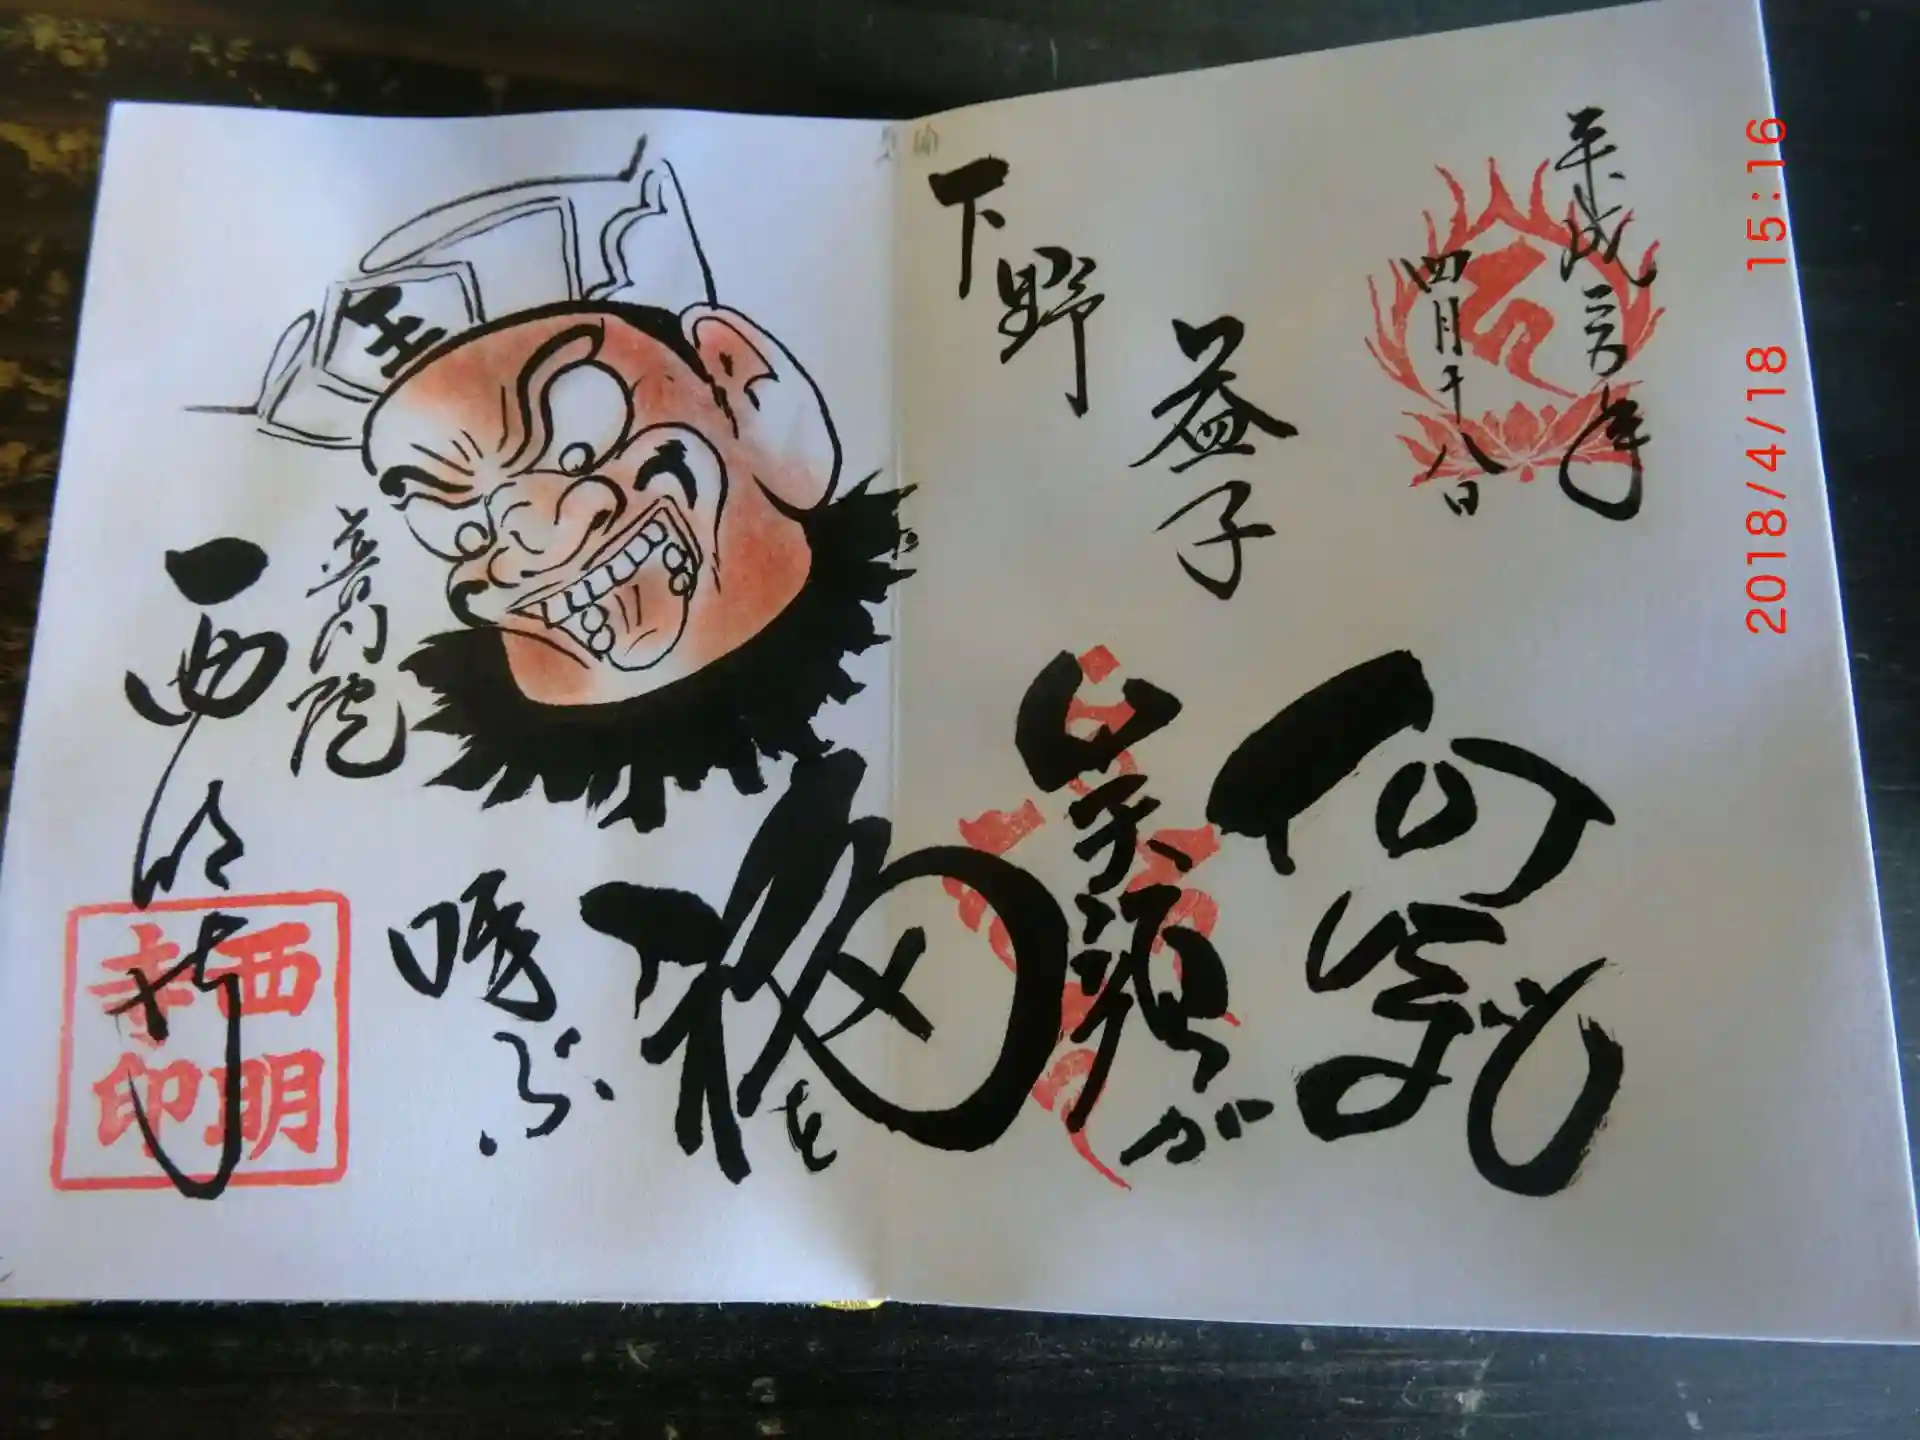 平成三〇年
四月十八日
下野
益子
笑顔が
福を
呼ぶ
王
普門院
西明寺
西明
寺印
2018/4/18 15:16